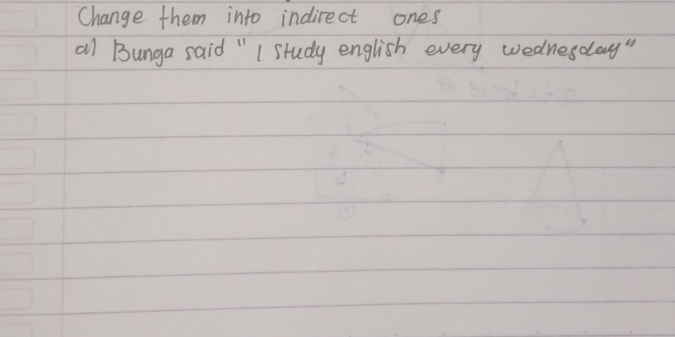 Change them into indirect ones
a) Bunga said " I study english every wednesday"